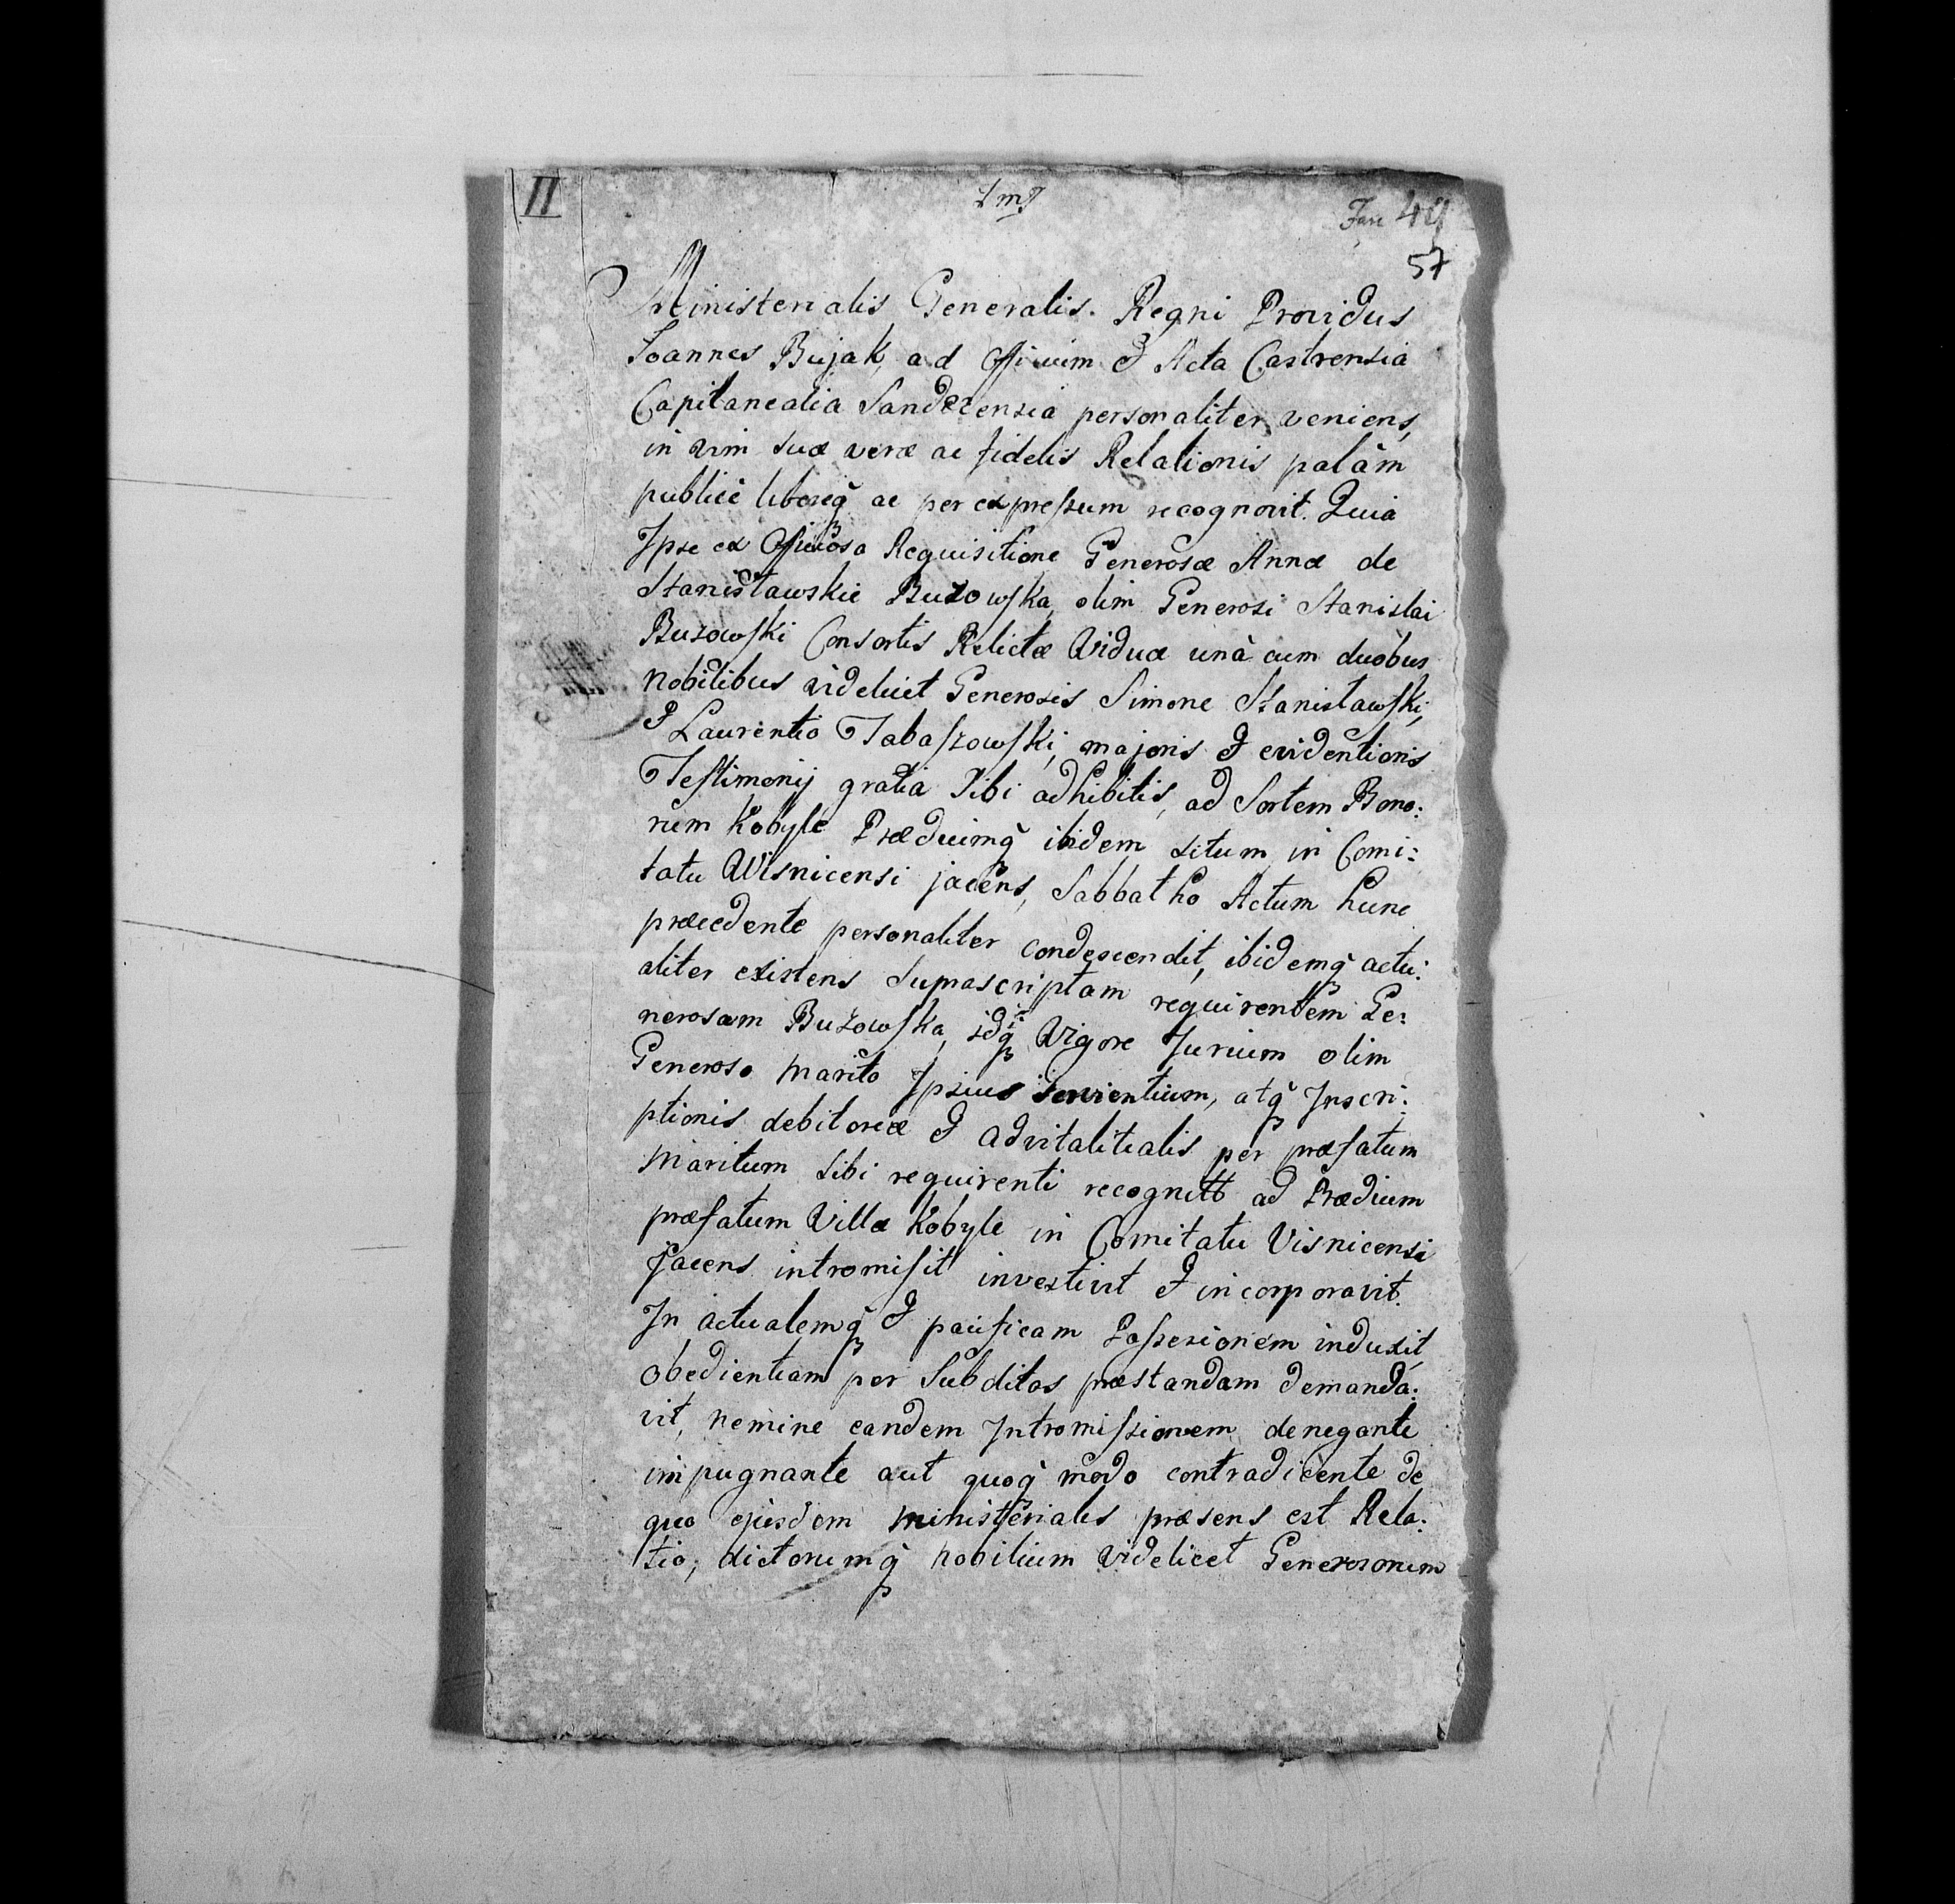 II
1mꝫ
Fasc 49
57
Ministerialis Generalis. Regni Providus
Joannes Bujak, ad Officium & Acta Castrensia
Capitanealia Sandecensia personaliter veniens,
in vim suæ veræ ac fidelis Relationis palàm
publicè libereq̀ ac per expressum recognovit. Quia
Ipse ex Officiosa Requisitione Generosæ Annæ de
Stanisławskie Buzowska, olim Generosi Stanislai
Buzowski Consortis Relictæ Viduæ unà cum duobus
Nobilibus videlicet Generosis Simone Stanisławski,
& Laurentio Tabaszowski, majoris & evidentioris
Testimonij gratia Sibi adhibitis, ad Sortem Bono:
rum Kobyle Prædiumq̀ ibidem situm in Comi:
tatu Wisnicensi jacens, Sabbatho Actum hunc
præcedente personaliter condescendit, ibidemq̀ actu:
aliter existens Suprascriptam requirentem Ge:
nerosam Buzowska, idq̀ Vigore Jurium olim
Generoso Marito Ipsius servientium, atq̀ Inscri:
ptionis debitoriæ & advitalitialis per præfatum
Maritum Sibi requirenti recognitæ ad Prædium
præfatum Villæ Kobyle in Comitatu Visnicensi
Jacens intromisit investivit & incorporavit.
In actualemq̀ & pacificam Possessionem induxit,
obedientiam per Subditos præstandam demanda:
vit, nemine eandem Intromissionem denegante
impugnante aut quoq̀ modo contradicente de
quo ejusdem Ministerialis præsens est Rela:
tio, dictorumq̀ Nobilium Videlicet Generosorum